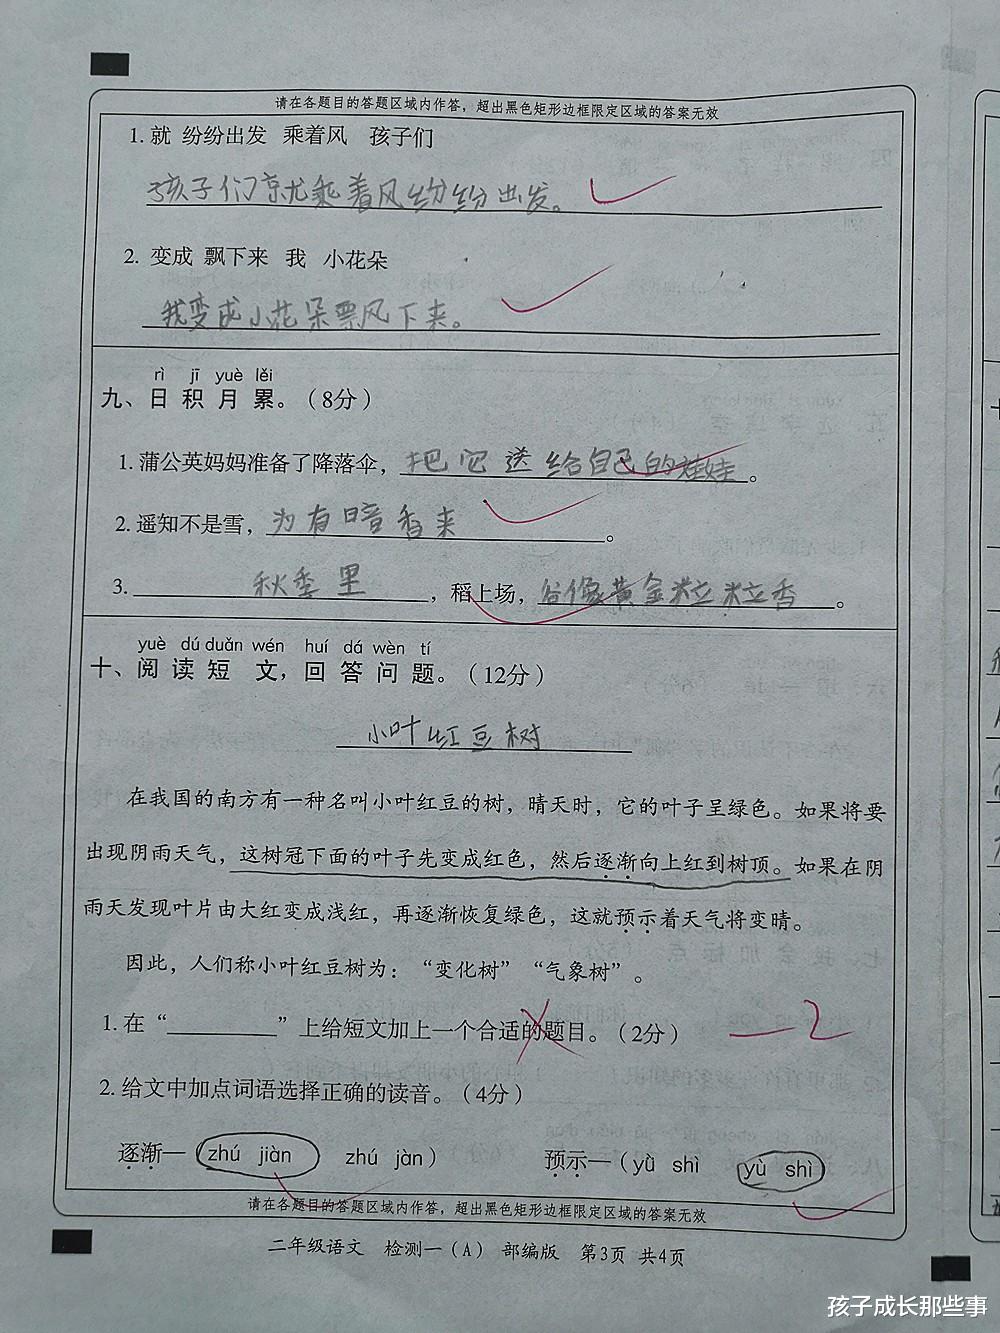 请在各题目的答题区域内作答，超出黑色矩形边框限定区域的答案无效
1. 就 纷纷出发 乘着风 孩子们
孩子们就乘着风纷纷出发。
2. 变成 飘下来 我 小花朵
我变成小花朵票风下来。
rì jī yuè lěi
九、日积月累。（8分）
1. 蒲公英妈妈准备了降落伞，把它送给自己的娃娃。
2. 遥知不是雪，为有暗香来。
3. 秋季里，稻上场，谷像黄金粒粒香。
yuè dú duǎn wén huí dá wèn tí
十、阅读短文，回答问题。（12分）
小叶红豆树
在我国的南方有一种名叫小叶红豆的树，晴天时，它的叶子呈绿色。如果将要
出现阴雨天气，这树冠下面的叶子先变成红色，然后逐渐向上红到树顶。如果在阴
雨天发现叶片由大红变成浅红，再逐渐恢复绿色，这就预示着天气将变晴。
因此，人们称小叶红豆树为：“变化树”“气象树”。
1. 在“________”上给短文加上一个合适的题目。（2分） —2
2. 给文中加点词语选择正确的读音。（4分）
逐渐—（zhú jiàn zhú jàn） 预示—（yù shì yù shì）
请在各题目的答题区域内作答，超出黑色矩形边框限定区域的答案无效
二年级语文 检测一（A） 部编版 第3页 共4页
孩子成长那些事